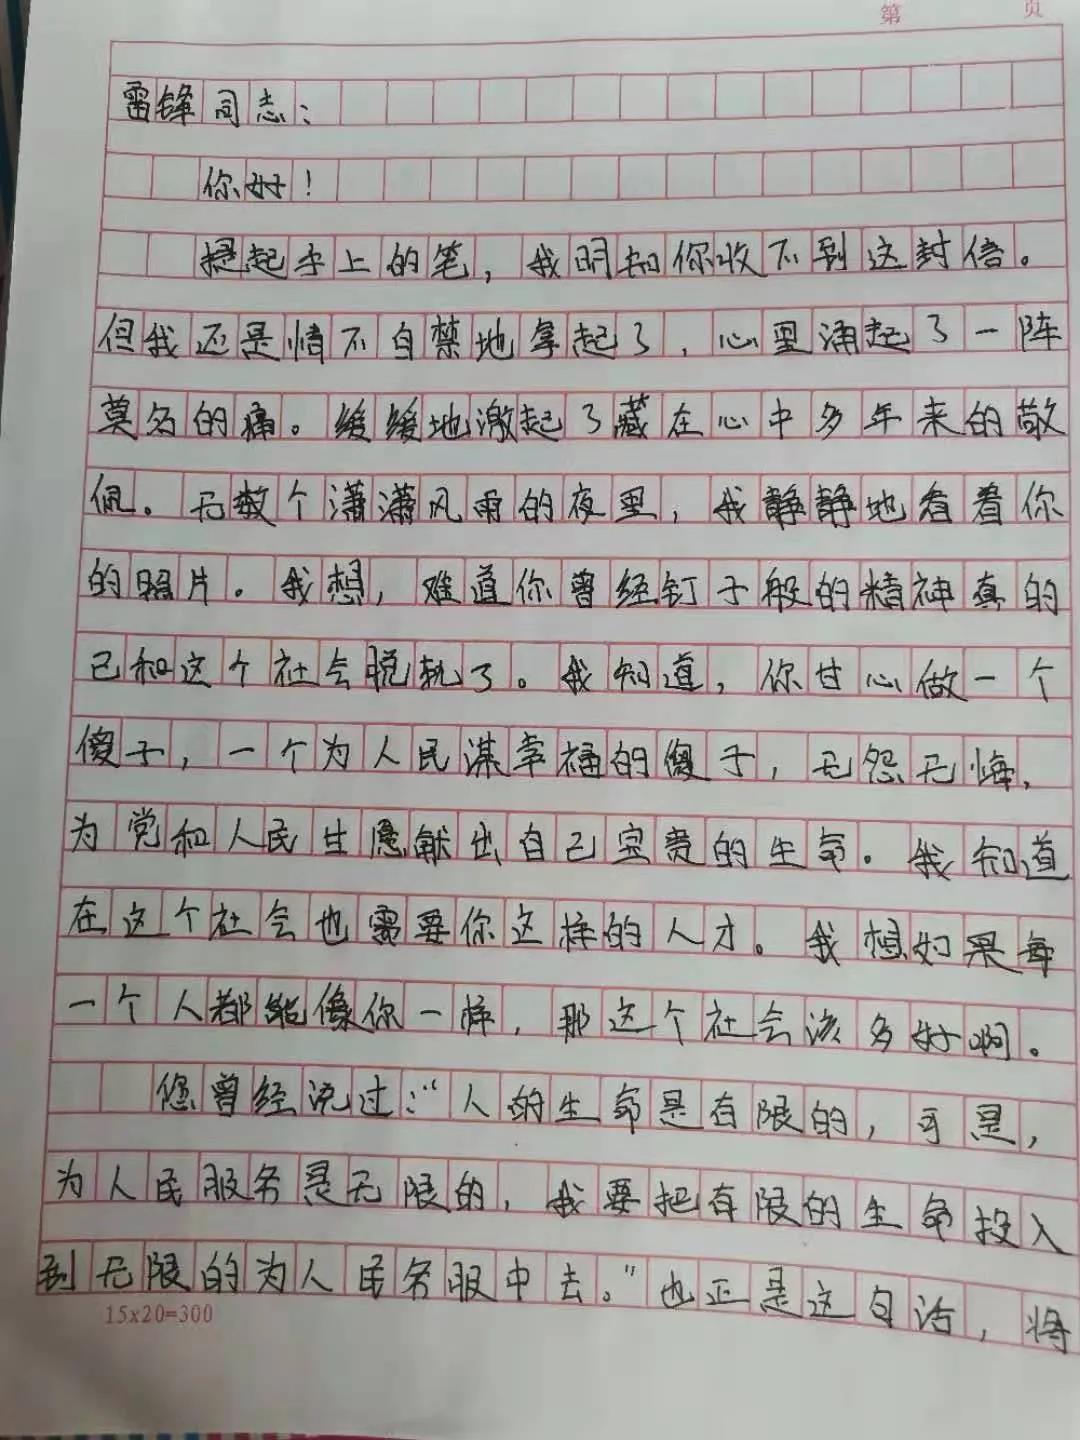 第 页
雷锋同志：
你好！
提起手上的笔，我明知你收不到这封信。
但我还是情不自禁地拿起了，心里涌起了一阵
莫名的痛。缓缓地激起了藏在心中多年来的敬
佩。无数个潇潇风雨的夜里，我静静地看着你
的照片。我想，难道你曾经钉子般的精神真的
已和这个社会脱轨了。我知道，你甘心做一个
傻子，一个为人民谋幸福的傻子，无怨无悔，
为党和人民甘愿献出自己宝贵的生命。我知道
在这个社会也需要你这样的人才。我想如果每
一个人都能像你一样，那这个社会该多好啊。
您曾经说过：“人的生命是有限的，可是，
为人民服务是无限的，我要把有限的生命投入
到无限的为人民务服中去。”也正是这句话，将
15x20=300